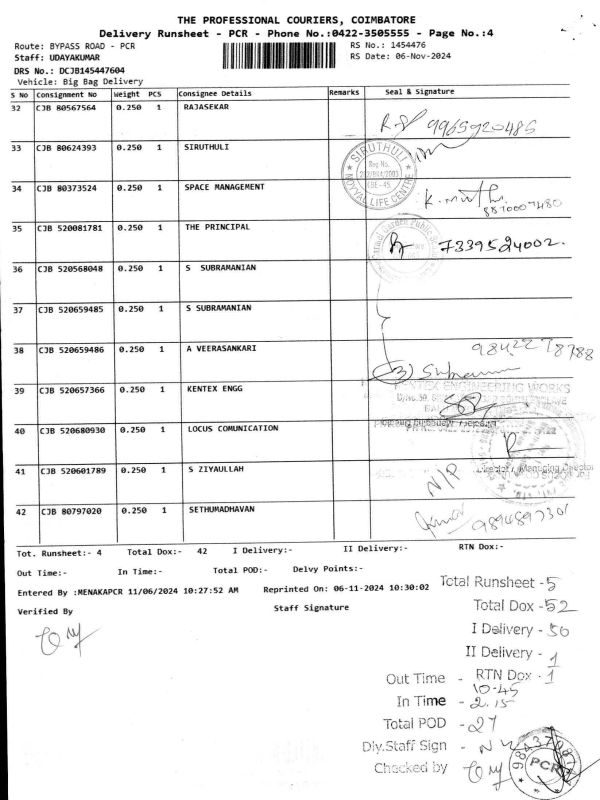 THE PROFESSIONAL COURIERS, COIMBATORE
Delivery Runsheet - PCR - Phone No.:0422-3505555 - Page No.:4
Route: BYPASS ROAD - PCR
RS No.: 1454476
Staff: UDAYAKUMAR
RS Date: 06-Nov-2024
DRS No.: DCJB145447604
Vehicle: Big Bag Delivery
S No Consignment No Weight PCS Consignee Details Remarks Seal & Signature
32 CJB 80567564 0.250 1 RAJASEKAR
9965920485
33 CJB 80624393 0.250 1 SIRUTHULI
SIRUTHULI
Reg.No.
NOYYAL LIFE CENTRE
34 CJB 80373524 0.250 1 SPACE MANAGEMENT
8870007480
35 CJB 520081781 1 0.250 1 THE PRINCIPAL
7339524002.
36 CJB 520568048 0.250 1 S SUBRAMANIAN
37 CJB 520659485 0.250 1 S SUBRAMANIAN
38 CJB 520659486 0.250 1 A VEERASANKARI
9842278788
39 CJB 520657366 0.250 1 KENTEX ENGG
KENTEX ENGINEERING WORKS
40 CJB 520680930 0.250 1 LOCUS COMUNICATION
41 CJB 520601789 0.250 1 S ZIYAULLAH
N/P
42 CJB 80797020 0.250 1 SETHUMADHAVAN
9894897301
Tot. Runsheet:- 4 Total Dox:- 42 I Delivery:- II Delivery:- RTN Dox:-
Out Time:- In Time:- Total POD:- Delvy Points:-
Entered By :MENAKAPCR 11/06/2024 10:27:52 AM Reprinted On: 06-11-2024 10:30:02
Verified By Staff Signature
Total Runsheet - 5
Total Dox - 52
I Delivery - 50
II Delivery - 1
RTN Dox - 1
Out Time - 10-45
In Time - 2.15
Total POD - 27
Dly.Staff Sign -
Checked by
PCR